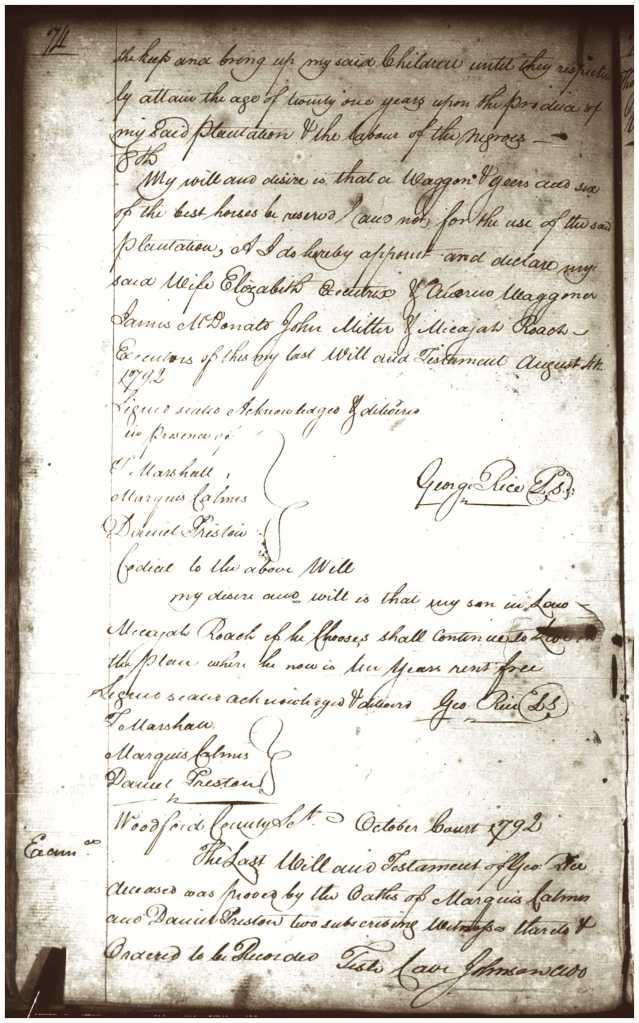 74
the keep and bring up my said Children until they respective
ly attain the age of twenty one years upon the produce of
my said plantation & the labour of the negroes
8th
My will and desire is that a Waggon & geers and six
of the best horses be reserved for the use of the said
plantation, I do hereby appoint and declare my
said Wife Elizabeth Executrix & Andrew Waggoner
James McDonald John Miller & Micajah Roach
Executors of this my last Will and Testament August 4th
1792
Signed sealed Acknowledged & delivered
in presence of
T Marshall
Marquis Calmes
Daniel Preston
George Rice LS
Codicil to the above Will
my desire and will is that my son in Law
Micajah Roach if he Chooses shall continue to Live
the place where he now is ten Years rent free
Signed sealed acknowledged & delivered Geo. Rice LS
T Marshall
Marquis Calmes
Daniel Preston
Woodford County Sct October Court 1792
Examd
The Last Will and Testament of Geo Rice
deceased was proved by the Oaths of Marquis Calmes
and Daniel Preston two subscribing Witnesses thereto &
Ordered to be Recorded Teste Cave Johnson